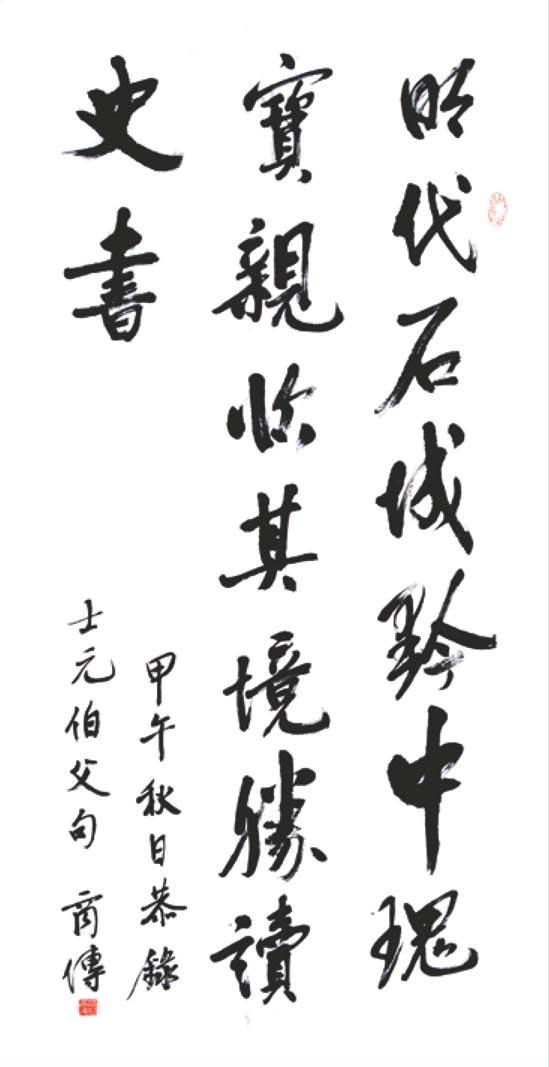 明代石城黔中瑰
寶親临其境勝讀
史書
甲午秋日恭錄
士元伯父句 商傳